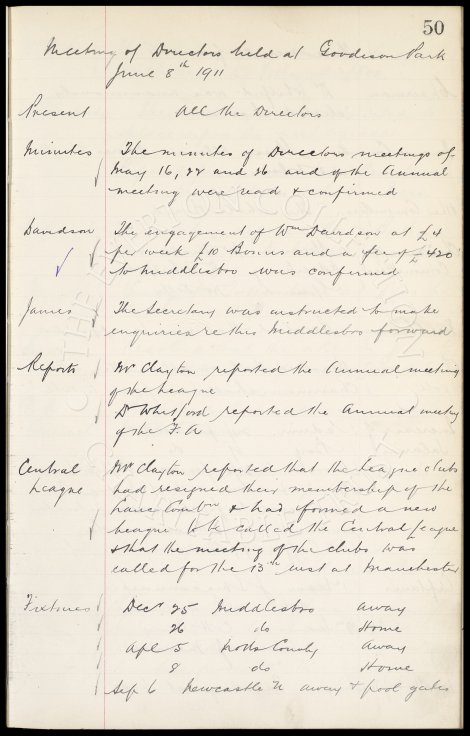 50
Meeting of Directors held at Goodison Park
June 8th 1911
Present All the Directors
Minutes The minutes of Directors meetings of
May 16, 22 and 26 and of the Annual
meeting were read & confirmed
Davidson The engagement of Wm Davidson at £4
per week £10 Bonus and a fee of £420
to Middlesbro was confirmed
James The Secretary was instructed to make
enquiries re this Middlesbro forward
Reports Mr Clayton reported the Annual meeting
of the League
Dr Whitford reported the Annual meeting
of the F.A
Central Mr Clayton reported that the League clubs
League had resigned their membership of the
Lanc Combtn & had formed a new
League to be called the Central League
& that the meeting of the clubs was
called for the 13th inst at Manchester
Fixtures Decr 25 Middlesbro away
26 do Home
Apl 5 Notts County away
8 do Home
Sep 6 Newcastle U away & pool gates